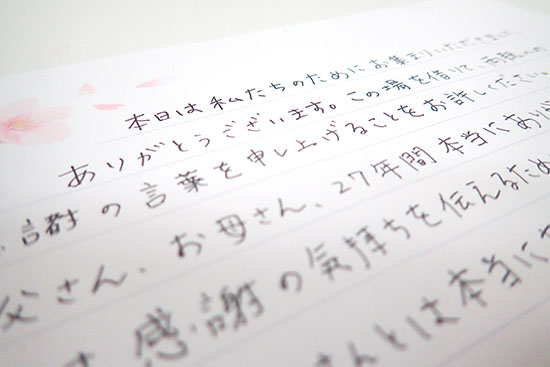 本日は私たちのためにお集まりいただきまして
ありがとうございます。この場を借りて両親への
感謝の言葉を申し上げることをお許しください。
父さん、お母さん、27年間本当にあり
感謝の気持ちを伝えるため
さんとは本当に